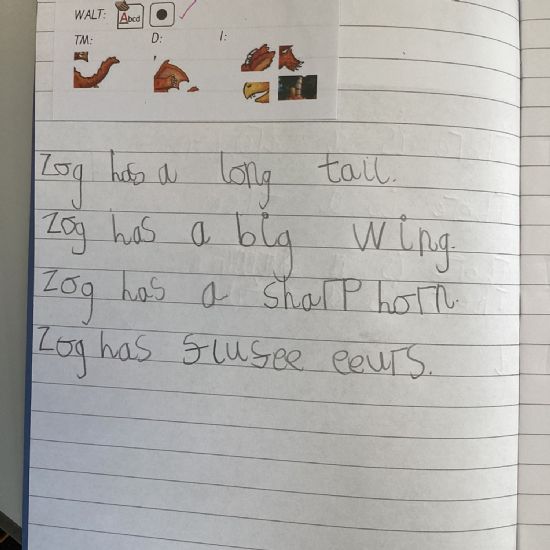 WALT: Abcd
TM: D: I:
Zog has a long tail.
Zog has a big wing.
Zog has a sharp horn.
Zog has flufee eeurs.